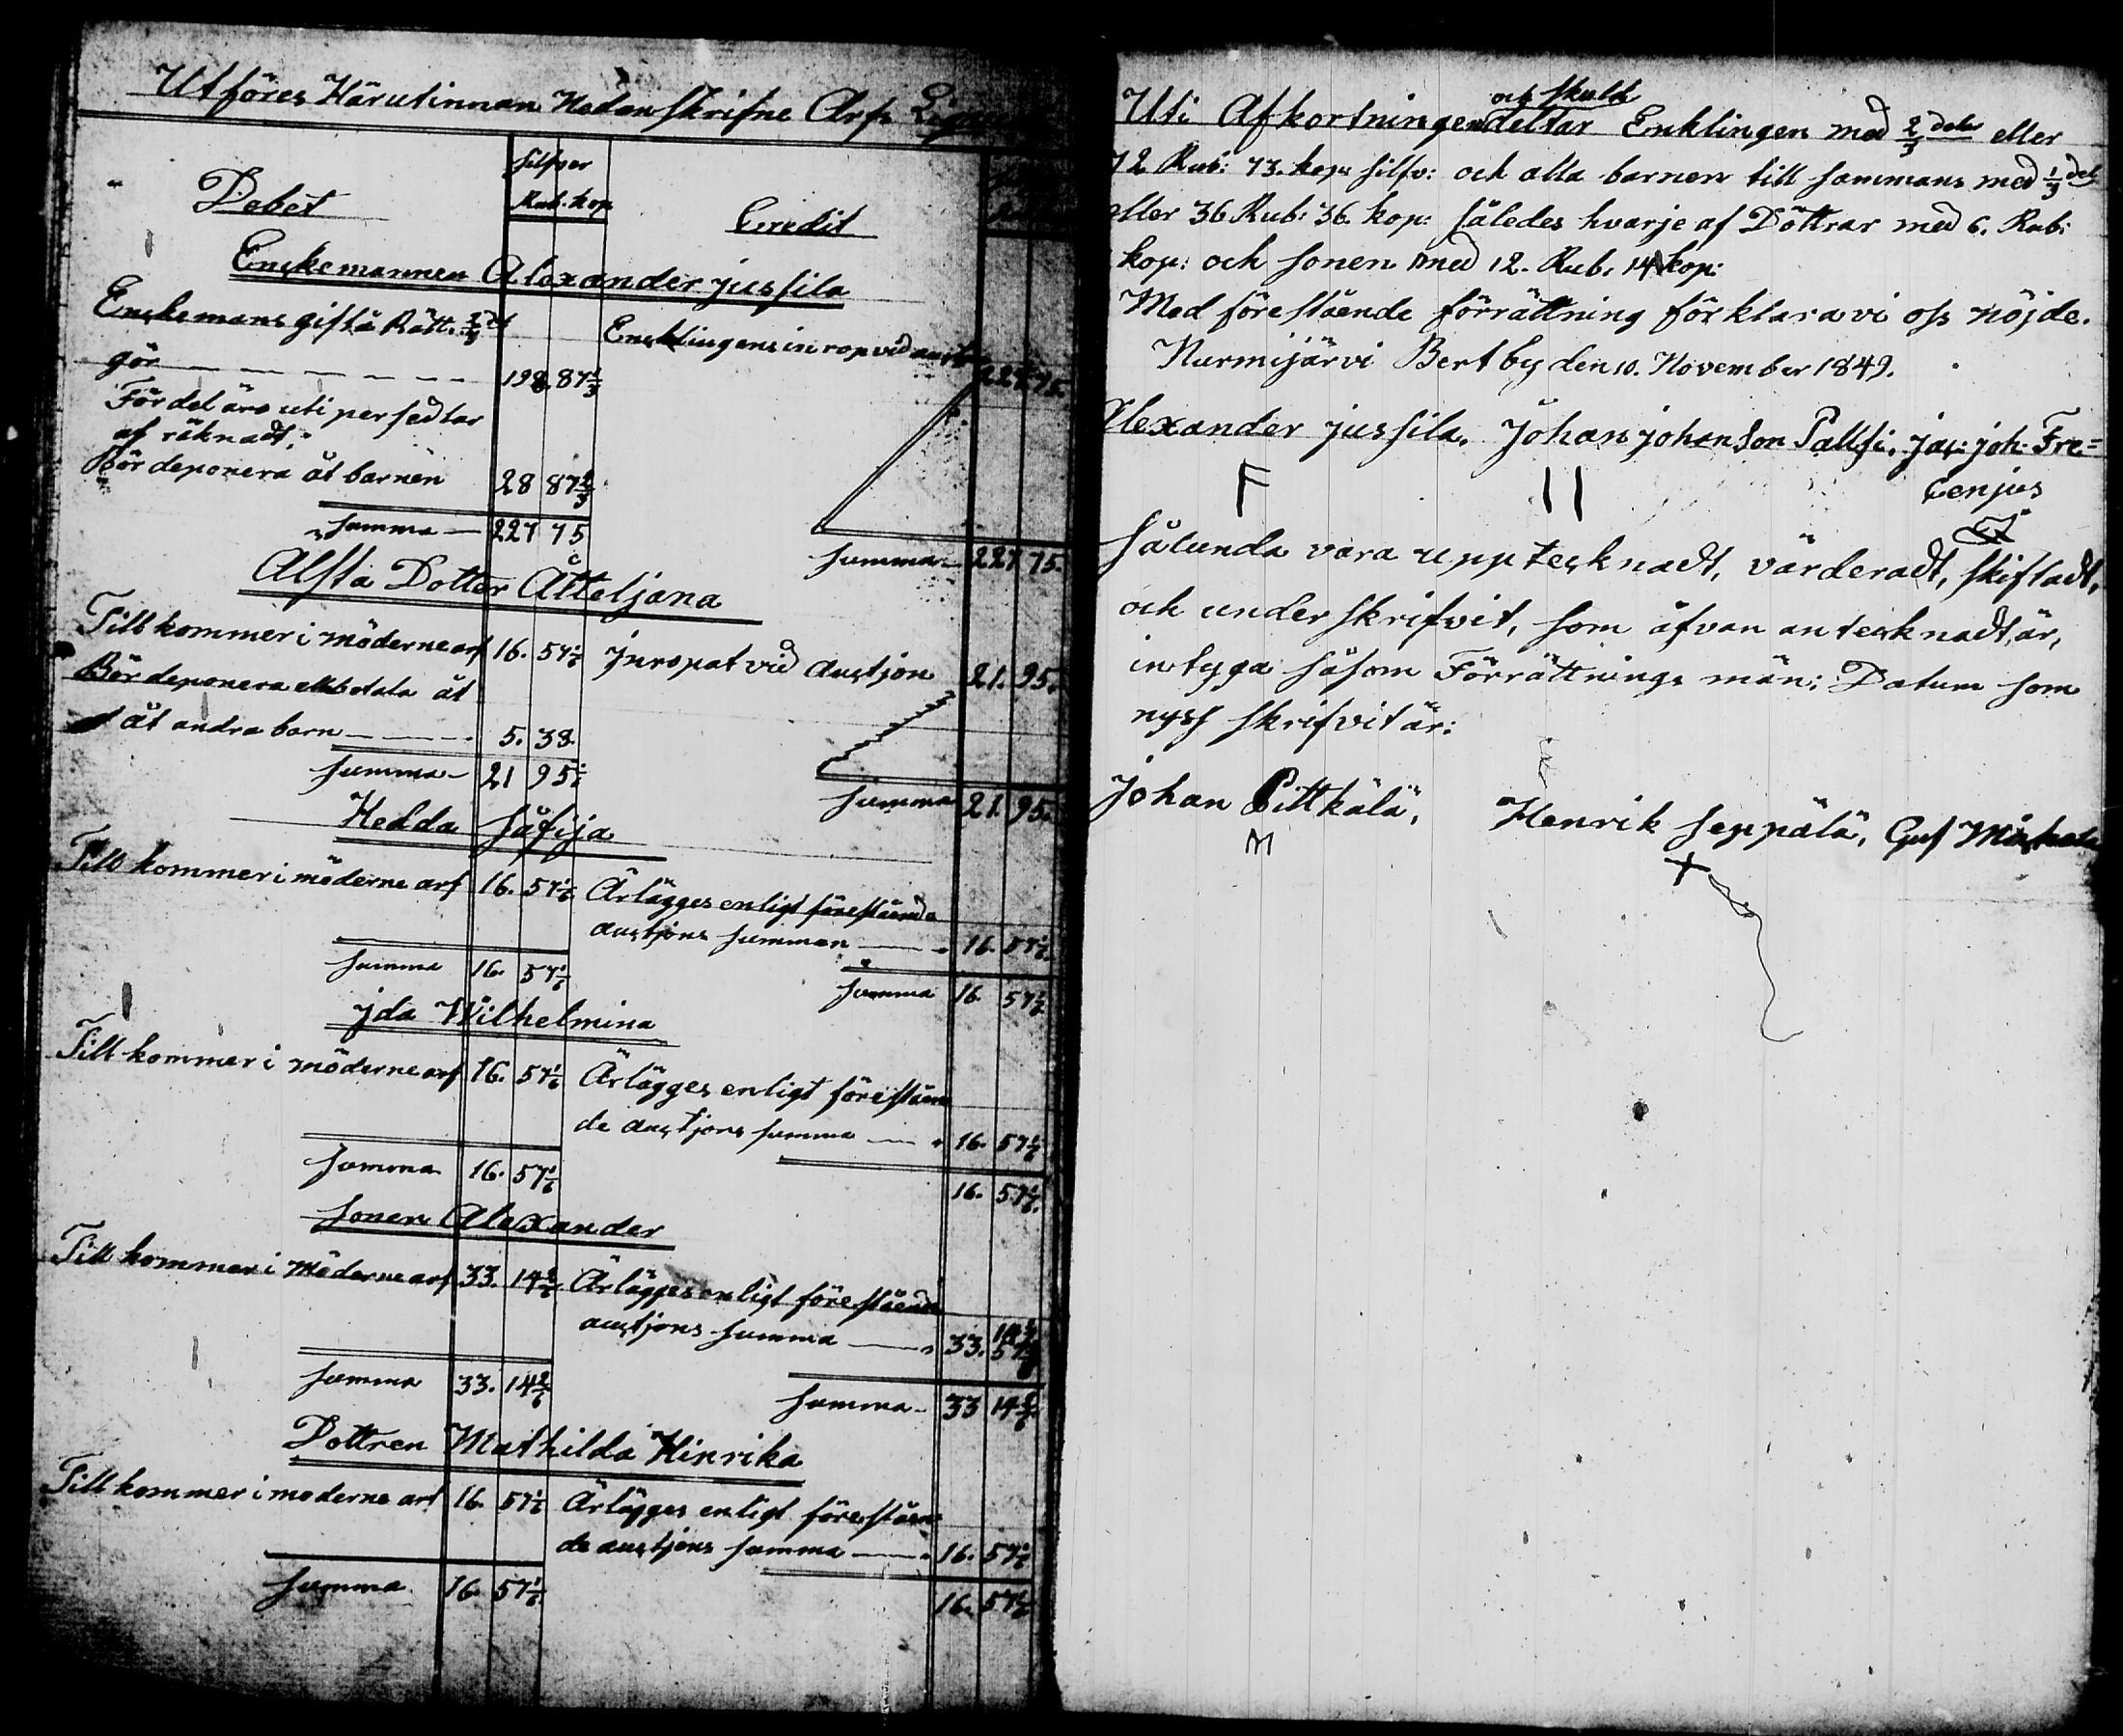 Utföres Härutinnan Nedanskrifne Arfs
Debet
Silfver
Rub. kop
Credit
Enckemannen Alexander jussila
Enckemans gifta Rätt. 2/3 del
gör — — — — — — 198. 87 1/3
Enklingens in rop vid 227 75.
För del äro uti persedlar
af räknadt.
Bör deponera åt barnen 28 87 2/3
Summa — 227 75
Summa — 227 75.
Älsta Dotter Åtteljana
Till kommer i möderne arf 16. 57 1/6
jnropat vid Auctjon 21. 95.
Bör deponera åt
åt andra barn — — — 5. 38.
Summa — 21 95 1/6
Summa 21. 95.
Hedda Såfija
Till kommer i möderne arf 16. 57 1/6
Ärlägges enligt förestående
auctjons summan — 16. 57 1/6.
Summa 16. 57 1/6
Summa 16. 57 1/6
jda Wilhelmina
Till kommer i möderne arf 16. 57 1/6
Ärlägges enligt föreståen
de auctjons summa — 16. 57 1/6
Summa 16. 57 1/6
16. 57 1/6.
Sonen Alexander
Till kommer i Möderne arf 33. 14 2/6
Ärlägges enligt förestående
auctjons summa — 33.
Summa 33. 14 2/6
Summa — 33 14 2/6
Dottren Mathilda Hinrika
Till kommer i moderne arf 16. 57 1/6
Ärlägges enligt föreståen
de auctjons summa — 16. 57 1/6
Summa 16. 57 1/6
16. 57 1/6
och skuld
Uti Afkortningen deltar Enklingen med 2/3 delar eller
72 Rub: 73. kop: silfv: och alla barnen till sammans med 1/3 del
eller 36 Rub: 36. kop: således hvarje af Döttrar med 6. Rub:
kop: och sonen med 12. Rub. 14 kop:
Med förestående förrättning förklara vi oss nöjde.
Nurmijärvi Bertby den 10. November 1849.
Alexander jussila. Johan johanson Pallsi. jac: joh. Fre=
cenjus
F II
Sålunda vara upptecknadt, värderadt, skiftadt,
och underskrifvit, som åfvan antecknadt är,
intyga såsom Förrättnings män: Datum som
nyss skrifvit är:
Johan Pittkälä, Henrik Seppälä, Gus
M +